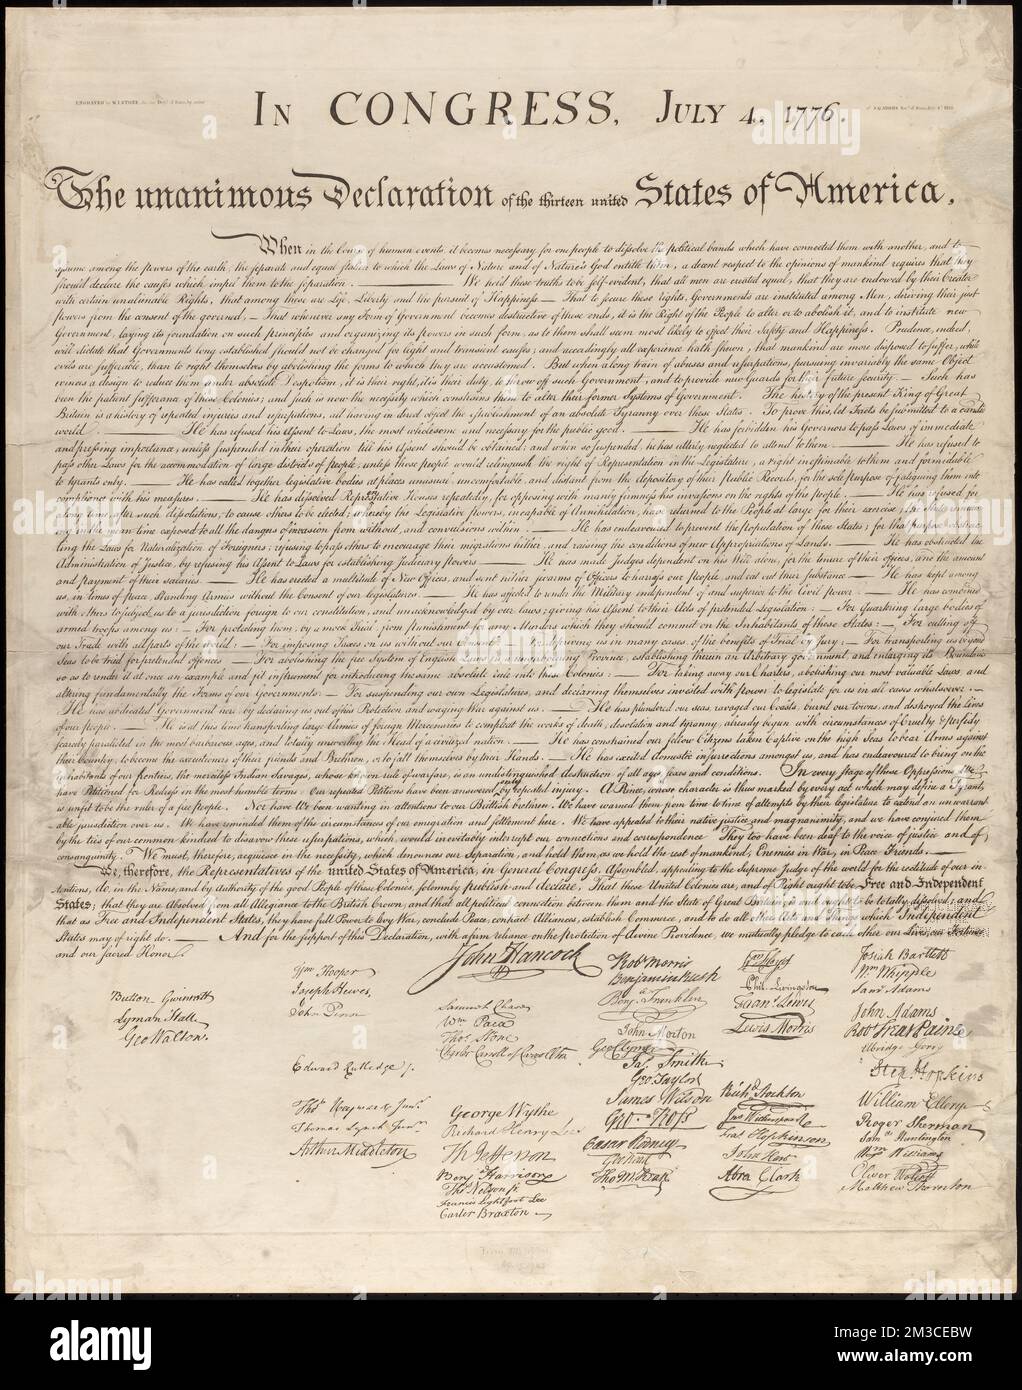 ENGRAVED by W.I. STONE
IN CONGRESS, JULY 4, 1776.
The unanimous Declaration of the thirteen united States of America,
When in the Course of human events, it becomes necessary for one people to dissolve the political bands which have connected them with another, and to
assume among the powers of the earth, the separate and equal station to which the Laws of Nature and of Nature's God entitle them, a decent respect to the opinions of mankind requires that they
should declare the causes which impel them to the separation. — We hold these truths to be self-evident, that all men are created equal, that they are endowed by their Creator
with certain unalienable Rights, that among these are Life, Liberty and the pursuit of Happiness — That to secure these rights, Governments are instituted among Men, deriving their just
powers from the consent of the governed, — That whenever any Form of Government becomes destructive of these ends, it is the Right of the People to alter or to abolish it, and to institute new
Government, laying its foundation on such principles and organizing its powers in such form, as to them shall seem most likely to effect their Safety and Happiness. Prudence, indeed,
will dictate that Governments long established should not be changed for light and transient causes; and accordingly all experience hath shewn, that mankind are more disposed to suffer, while
evils are sufferable, than to right themselves by abolishing the forms to which they are accustomed. But when a long train of abuses and usurpations, pursuing invariably the same Object
evinces a design to reduce them under absolute Despotism, it is their right, it is their duty, to throw off such Government, and to provide new Guards for their future security. — Such has
been the patient sufferance of these Colonies; and such is now the necessity which constrains them to alter their former Systems of Government. The history of the present King of Great
Britain is a history of repeated injuries and usurpations, all having in direct object the establishment of an absolute Tyranny over these States. To prove this, let Facts be submitted to a candid
world. — He has refused his Assent to Laws, the most wholesome and necessary for the public good. — He has forbidden his Governors to pass Laws of immediate
and pressing importance, unless suspended in their operation till his Assent should be obtained; and when so suspended, he has utterly neglected to attend to them. — He has refused to
pass other Laws for the accommodation of large districts of people, unless those people would relinquish the right of Representation in the Legislature, a right inestimable to them and formidable
to tyrants only. — He has called together legislative bodies at places unusual, uncomfortable, and distant from the depository of their public Records, for the sole purpose of fatiguing them into
compliance with his measures. — He has dissolved Representative Houses repeatedly, for opposing with manly firmness his invasions on the rights of the people. — He has refused for
a long time, after such dissolutions, to cause others to be elected; whereby the Legislative powers, incapable of Annihilation, have returned to the People at large for their exercise; the State remain-
ing in the mean time exposed to all the dangers of invasion from without, and convulsions within. — He has endeavoured to prevent the Population of these States; for that purpose obstruc-
ting the Laws for Naturalization of Foreigners; refusing to pass others to encourage their migrations hither, and raising the conditions of new Appropriations of Lands. — He has obstructed the
Administration of Justice, by refusing his Assent to Laws for establishing Judiciary powers. — He has made Judges dependent on his Will alone, for the tenure of their offices, and the amount
and payment of their salaries. — He has erected a multitude of New Offices, and sent hither swarms of Officers to harass our People, and eat out their substance. — He has kept among
us, in times of peace, Standing Armies without the Consent of our legislatures. — He has affected to render the Military independent of and superior to the Civil power. — He has combined
with others to subject us to a jurisdiction foreign to our constitution, and unacknowledged by our laws; giving his Assent to their Acts of pretended Legislation: — For quartering large bodies of
armed troops among us: — For protecting them, by a mock Trial, from punishment for any Murders which they should commit on the Inhabitants of these States: — For cutting off
our Trade with all parts of the world: — For imposing Taxes on us without our Consent: — For depriving us in many cases, of the benefits of Trial by Jury: — For transporting us beyond
Seas to be tried for pretended offences — For abolishing the free System of English Laws in a neighbouring Province, establishing therein an Arbitrary government, and enlarging its Boundaries
so as to render it at once an example and fit instrument for introducing the same absolute rule into these Colonies: — For taking away our Charters, abolishing our most valuable Laws, and
altering fundamentally the Forms of our Governments: — For suspending our own Legislatures, and declaring themselves invested with power to legislate for us in all cases whatsoever. —
He has abdicated Government here, by declaring us out of his Protection and waging War against us. — He has plundered our seas, ravaged our Coasts, burnt our towns, and destroyed the lives
of our people. — He is at this time transporting large Armies of foreign Mercenaries to compleat the works of death, desolation and tyranny, already begun with circumstances of Cruelty & perfidy
scarcely paralleled in the most barbarous ages, and totally unworthy the Head of a civilized nation. — He has constrained our fellow Citizens taken Captive on the high Seas to bear Arms against
their Country, to become the executioners of their friends and Brethren, or to fall themselves by their Hands. — He has excited domestic insurrections amongst us, and has endeavoured to bring on the
inhabitants of our frontiers, the merciless Indian Savages, whose known rule of warfare, is an undistinguished destruction of all ages, sexes and conditions. In every stage of these Oppressions We
have Petitioned for Redress in the most humble terms: Our repeated Petitions have been answered only by repeated injury. A Prince, whose character is thus marked by every act which may define a Tyrant,
is unfit to be the ruler of a free people. Nor have We been wanting in attentions to our Brittish brethren. We have warned them from time to time of attempts by their legislature to extend an unwarrant-
able jurisdiction over us. We have reminded them of the circumstances of our emigration and settlement here. We have appealed to their native justice and magnanimity, and we have conjured them
by the ties of our common kindred to disavow these usurpations, which, would inevitably interrupt our connections and correspondence. They too have been deaf to the voice of justice and of
consanguinity. We must, therefore, acquiesce in the necessity, which denounces our Separation, and hold them, as we hold the rest of mankind, Enemies in War, in Peace Friends. —
We, therefore, the Representatives of the united States of America, in General Congress, Assembled, appealing to the Supreme Judge of the world for the rectitude of our in-
tentions, do, in the Name, and by Authority of the good People of these Colonies, solemnly publish and declare, That these United Colonies are, and of Right ought to be Free and Independent
States; that they are Absolved from all Allegiance to the British Crown, and that all political connection between them and the State of Great Britain, is and ought to be totally dissolved; and
that as Free and Independent States, they have full Power to levy War, conclude Peace, contract Alliances, establish Commerce, and to do all other Acts and Things which Independent
States may of right do. — And for the support of this Declaration, with a firm reliance on the protection of divine Providence, we mutually pledge to each other our Lives, our Fortunes
and our sacred Honor.
John Hancock
Button Gwinnett
Lyman Hall
Geo Walton.
Wm Hooper
Joseph Hewes,
John Penn
Edward Rutledge
Thos Heyward Junr.
Thomas Lynch Junr.
Arthur Middleton
Samuel Chase
Wm Paca
Thos Stone
Charles Carroll of Carrollton
George Wythe
Richard Henry Lee
Th Jefferson
Benj Harrison
Thos Nelson jr.
Francis Lightfoot Lee
Carter Braxton
Robt Morris
Benjamin Rush
Benj Franklin
John Morton
Geo Clymer
Jas. Smith
Geo. Taylor
James Wilson
Geo. Ross
Caesar Rodney
Geo Read
Tho M:Kean
Wm Floyd
Phil. Livingston
Frans. Lewis
Lewis Morris
Richd. Stockton
Jno Witherspoon
Fras. Hopkinson
John Hart
Abra Clark
Josiah Bartlett
Wm Whipple
Saml Adams
John Adams
Robt Treat Paine
Elbridge Gerry
Step. Hopkins
William Ellery
Roger Sherman
Saml Huntington
Wm Williams
Oliver Wolcott
Matthew Thornton
alamy
a
alamy
Image ID: 2M3CEBW
www.alamy.com